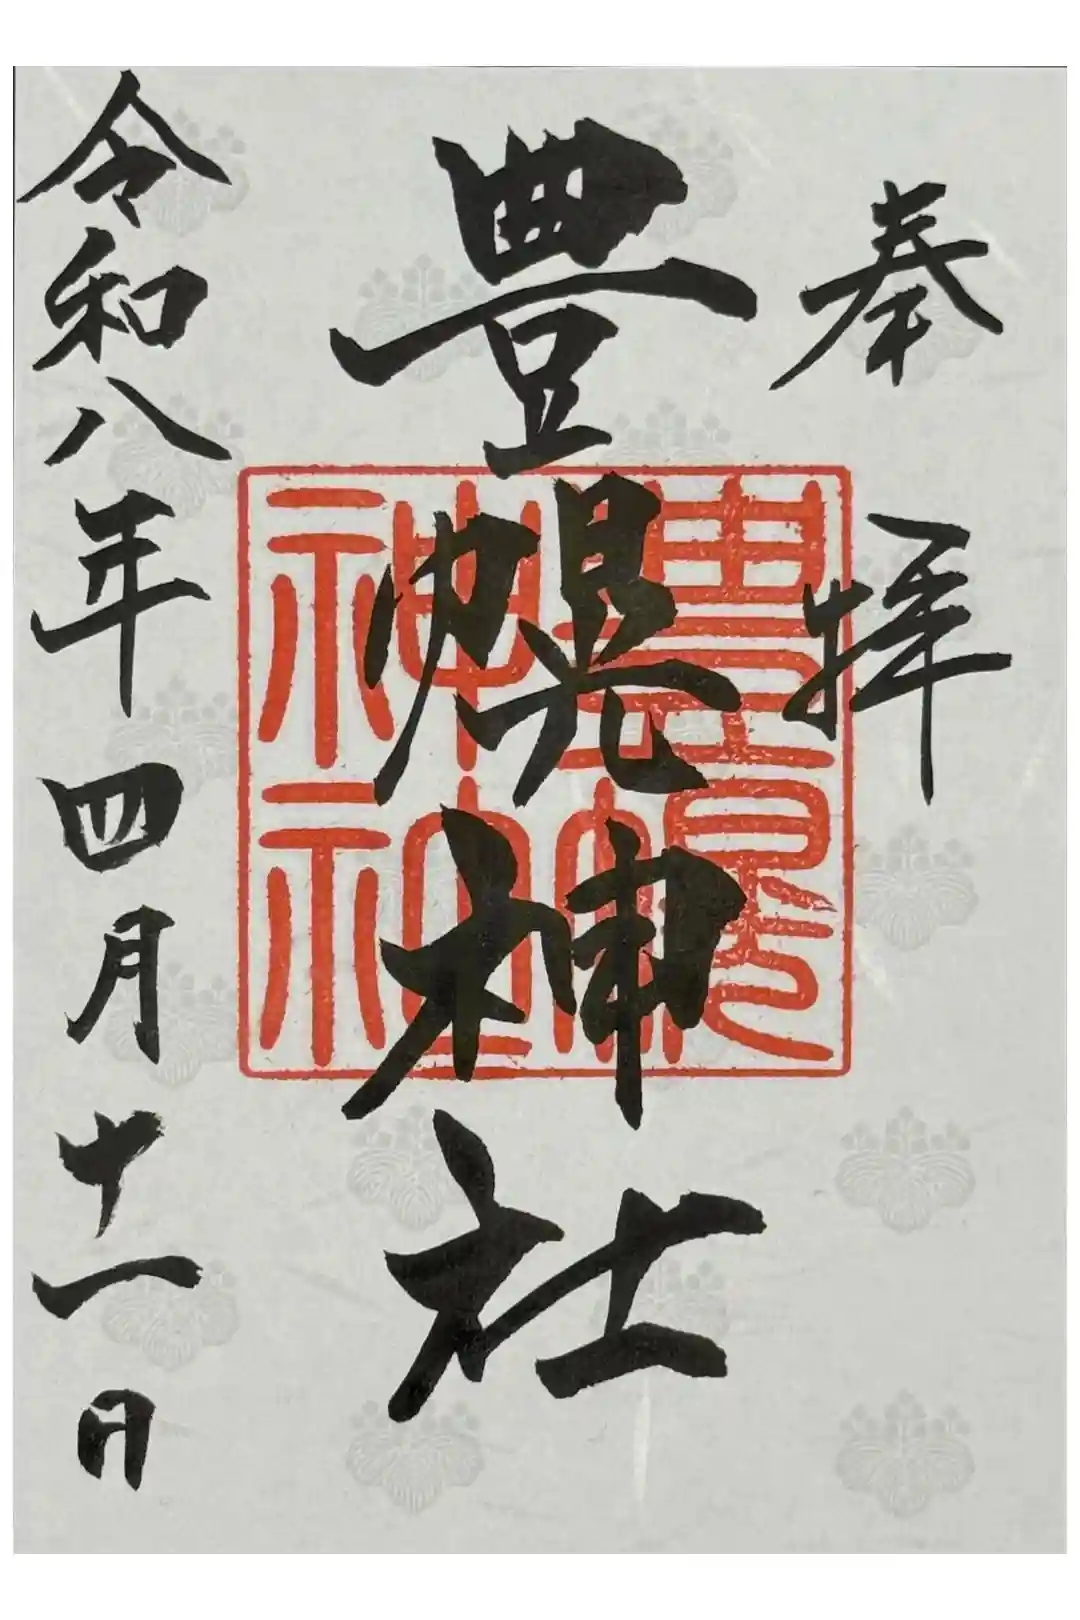 奉拝
豊幌神社
豊幌
神社
令和八年四月十一日